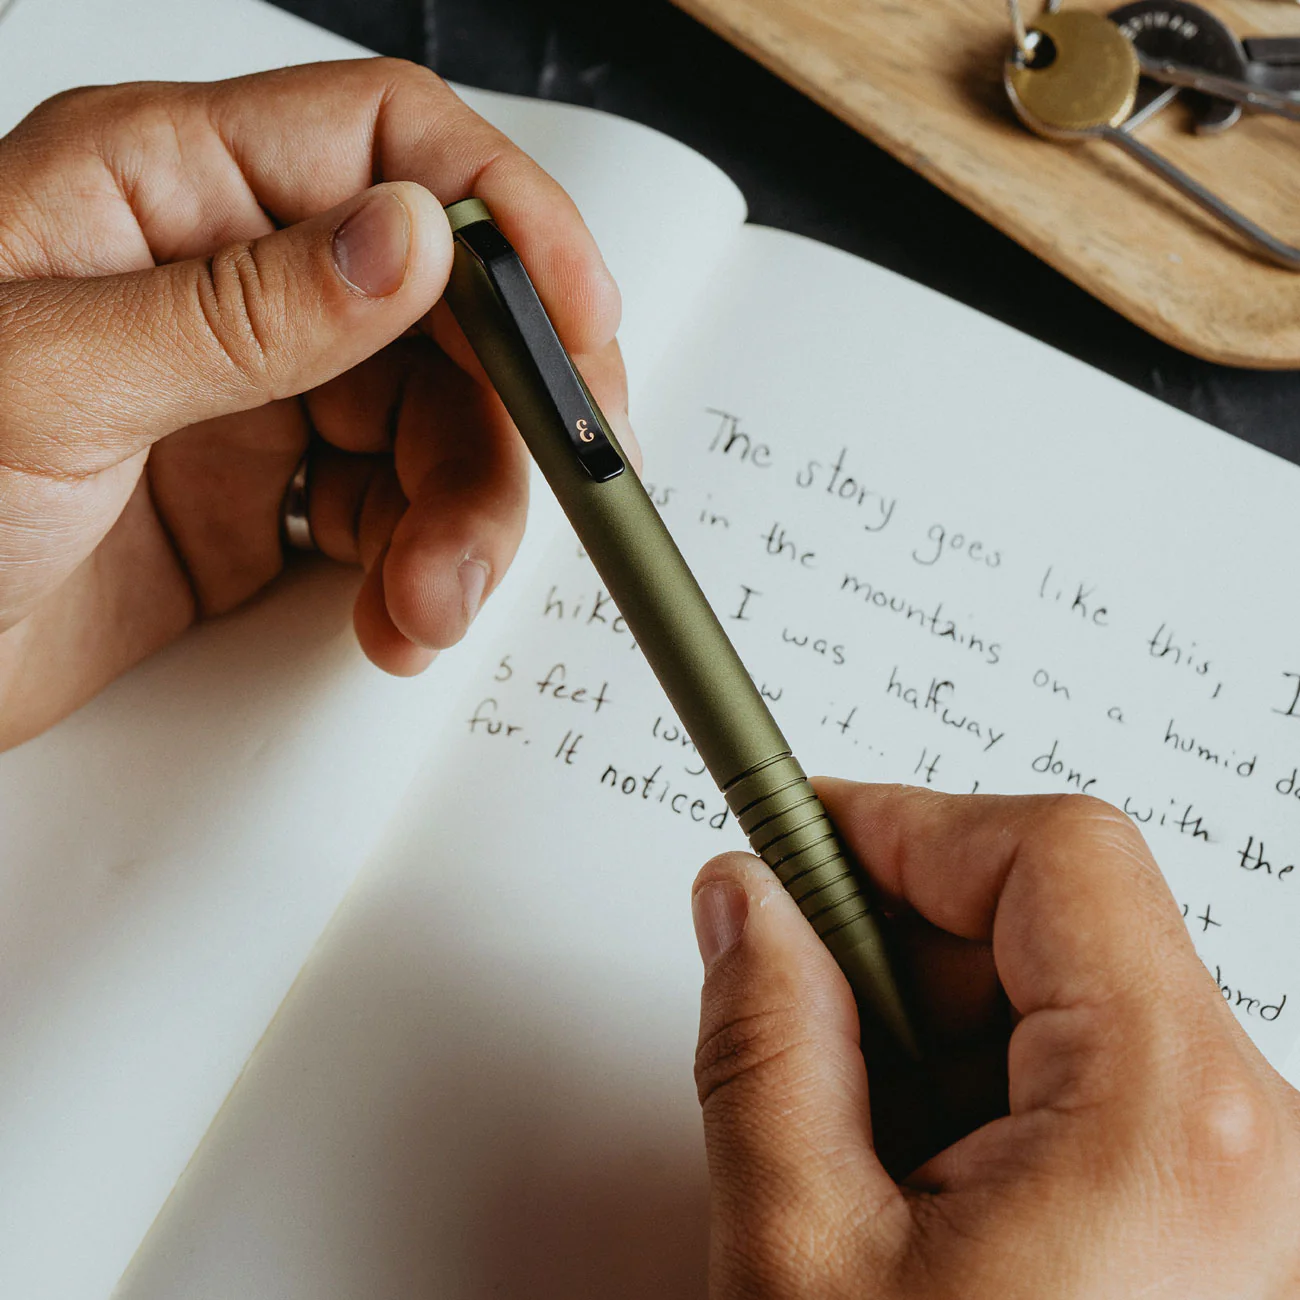 The story goes like this, I
in the mountains on a humid
hike, I was halfway done with the
5 feet it... It
fur. It noticed